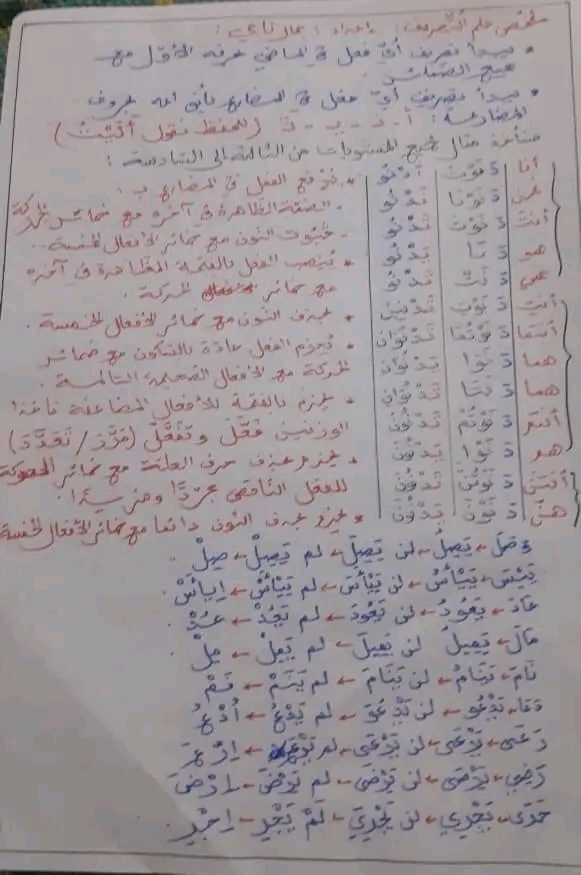 ملخص علم التصريف: إعداد: جمال ناجي:
• يبدأ تصريف أيّ فعل في الماضي بحرفه الأول مع
جميع الضمائر.
• يبدأ تصريف أيّ فعل في المضارع بأحد حروف
المضارعة: أ - ن - ي - ت (للحفظ نقول أنيت)
مثال لجميع المستويات من الثالثة إلى السادسة:
أنا دَنَوْتُ أَدْنُو
نحن دَنَوْنَا نَدْنُو
أنتَ دَنَوْتَ تَدْنُو
هو دَنَا يَدْنُو
هي دَنَتْ تَدْنُو
أنتِ دَنَوْتِ تَدْنِينَ
أنتما دَنَوْتُمَا تَدْنُوَانِ
هما دَنَوَا يَدْنُوَانِ
هما دَنَتَا تَدْنُوَانِ
أنتم دَنَوْتُمْ تَدْنُونَ
هم دَنَوْا يَدْنُونَ
أنتنّ دَنَوْتُنَّ تَدْنُونَ
هنّ دَنَوْنَ يَدْنُونَ
• نرفع الفعل في المضارع بـ:
- الضمة الظاهرة في آخره مع ضمائر الحركة
- ثبوت النون مع ضمائر الأفعال الخمسة.
• ينصب الفعل بالفتحة الظاهرة في آخره
مع ضمائر الحركة.
• بحذف النون مع ضمائر الأفعال الخمسة.
• يجزم الفعل عادة بالسكون مع ضمائر
الحركة مع الأفعال الصحيحة السالمة.
• يجزم بالفتحة للأفعال المضاعفة
الوزنين فَعَّلَ وتَفَعَّلَ (مَدَّدَ / تَعَدَّدَ)
• يجزم بحذف حرف العلة مع ضمائر الحركة
للفعل الناقص مجردًا ومزيدًا.
• يجزم بحذف النون دائما مع ضمائر الأفعال الخمسة
وَصَلَ - يَصِلُ - لن يَصِلَ - لم يَصِلْ - صِلْ.
يَئِسَ - يَيْأَسُ - لن يَيْأَسَ - لم يَيْأَسْ - اِيأَسْ.
عَادَ - يَعُودُ - لن يَعُودَ - لم يَعُدْ - عُدْ.
مَالَ - يَمِيلُ لن يَمِيلَ - لم يَمِلْ - مِلْ.
نَامَ - يَنَامُ - لن يَنَامَ - لم يَنَمْ - نَمْ.
دَعَا - يَدْعُو - لن يَدْعُوَ - لم يَدْعُ - اُدْعُ
رَعَى - يَرْعَى - لن يَرْعَى - لم يَرْعَ - اِرْعَ
رَضِيَ - يَرْضَى - لن يَرْضَى - لم يَرْضَ - اِرْضَ
جَرَى - يَجْرِي - لن يَجْرِيَ - لَمْ يَجْرِ - اِجْرِ.